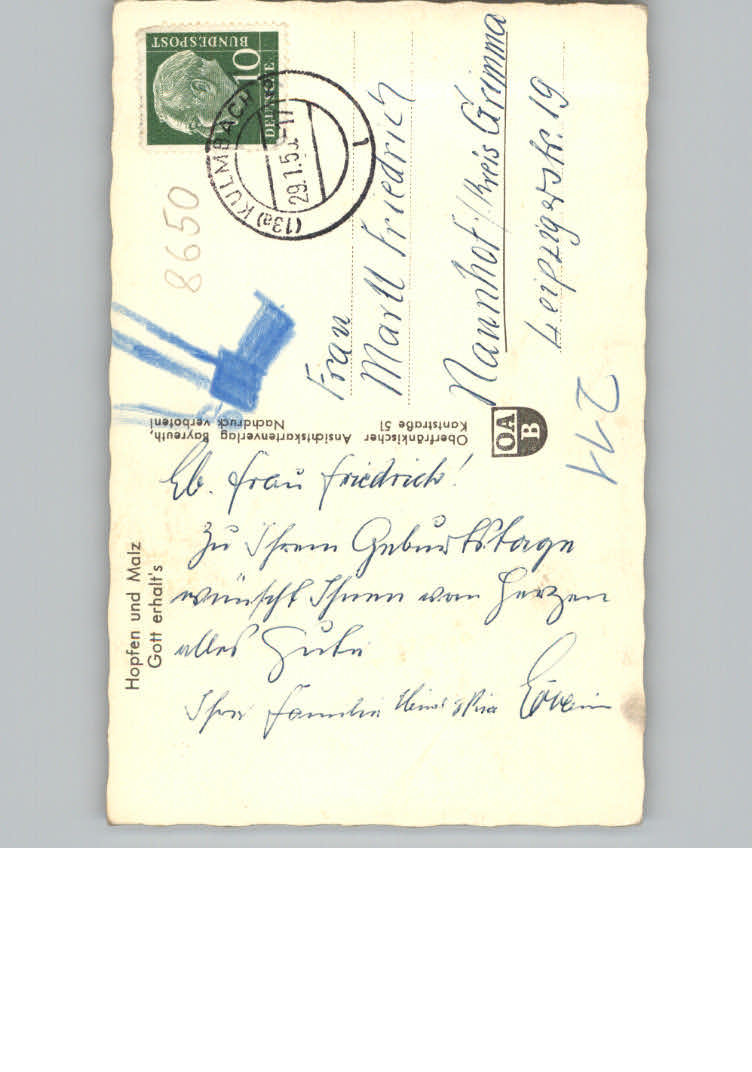 Hopfen und Malz
Gott erhalt's
Lb. Frau Friedrich!
Zu Ihrem Geburtstage
wünscht Ihnen von Herzen
alles Gute
Ihre Familie
Oberfränkischer Ansichtskartenverlag Bayreuth,
Kantstraße 51 Nachdruck verboten!
OA
B
DEUTSCHE
BUNDESPOST
10
(13a) KULMBACH
29.1.5
1
8650
Frau
Martl Friedrich
Naunhof / Kreis Grimma
Leipzigerstr. 19
211